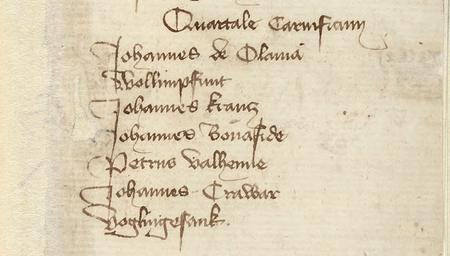 Quartale Carnificum
Johannes de Olauia
Wollimpfunt
Johannes kranz
Johannes Bonafide
Petrus valhenne
Johannes Crawar
Voglingesank.